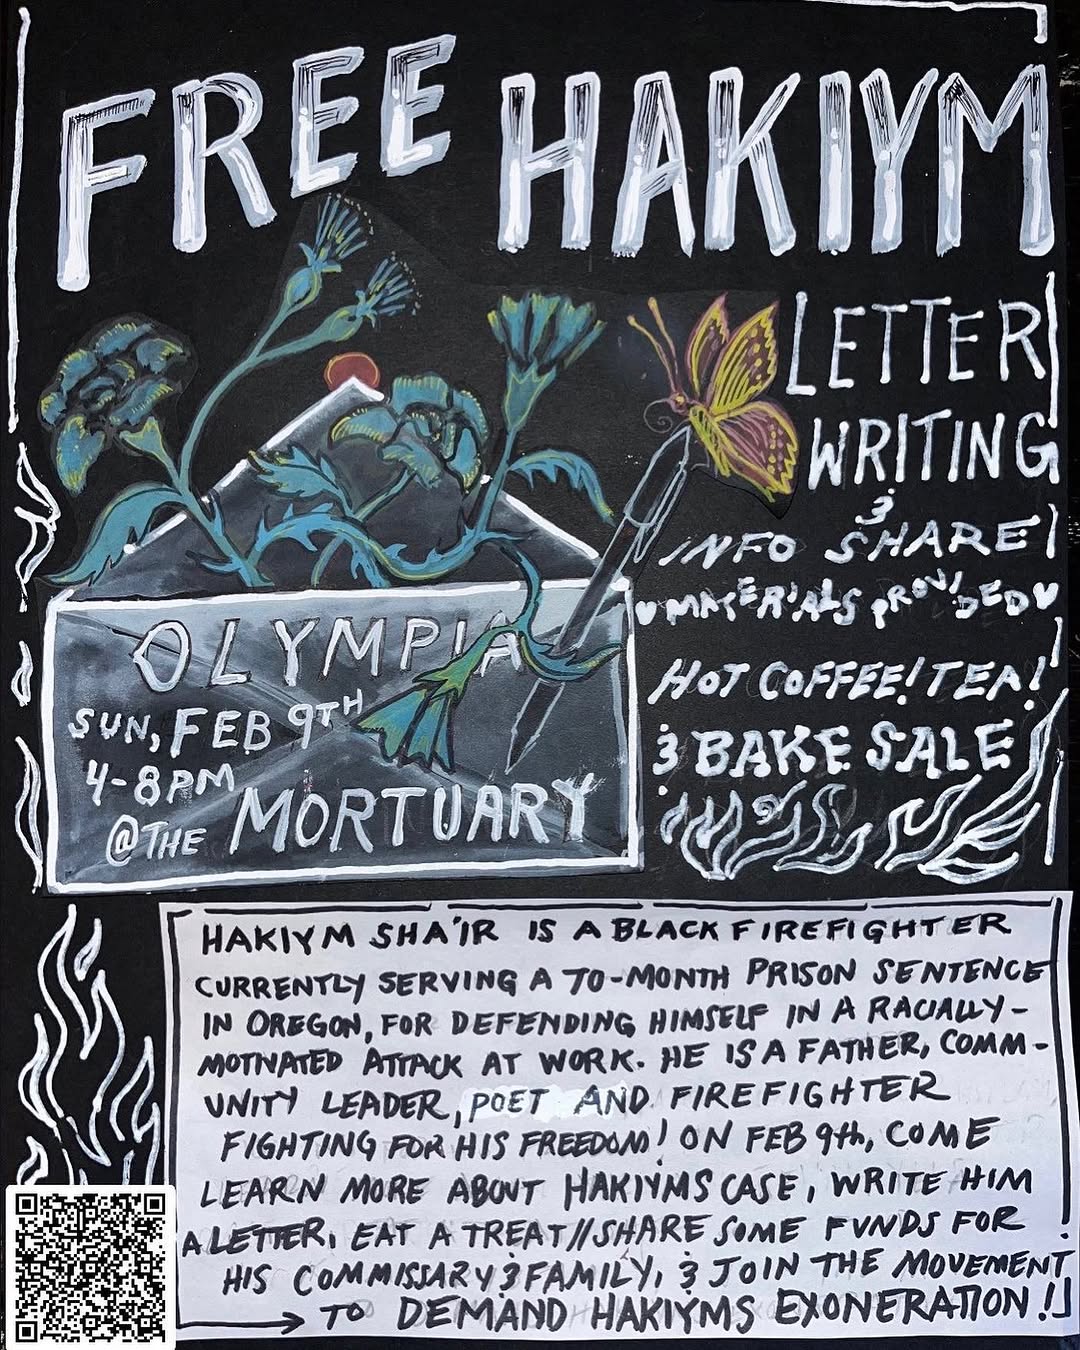 FREE HAKIYM
LETTER
WRITING
&
INFO SHARE!
♥MATERIALS PROVIDED♥
HOT COFFEE! TEA!
& BAKE SALE
OLYMPIA
SUN, FEB 9TH
4-8PM
@THE MORTUARY
HAKIYM SHA'IR IS A BLACK FIREFIGHTER
CURRENTLY SERVING A 70-MONTH PRISON SENTENCE
IN OREGON, FOR DEFENDING HIMSELF IN A RACIALLY-
MOTIVATED ATTACK AT WORK. HE IS A FATHER, COMM-
UNITY LEADER, POET AND FIREFIGHTER
FIGHTING FOR HIS FREEDOM! ON FEB 9th, COME
LEARN MORE ABOUT HAKIYMS CASE, WRITE HIM
A LETTER, EAT A TREAT//SHARE SOME FUNDS FOR
HIS COMMISSARY & FAMILY, & JOIN THE MOVEMENT
→ TO DEMAND HAKIYMS EXONERATION!